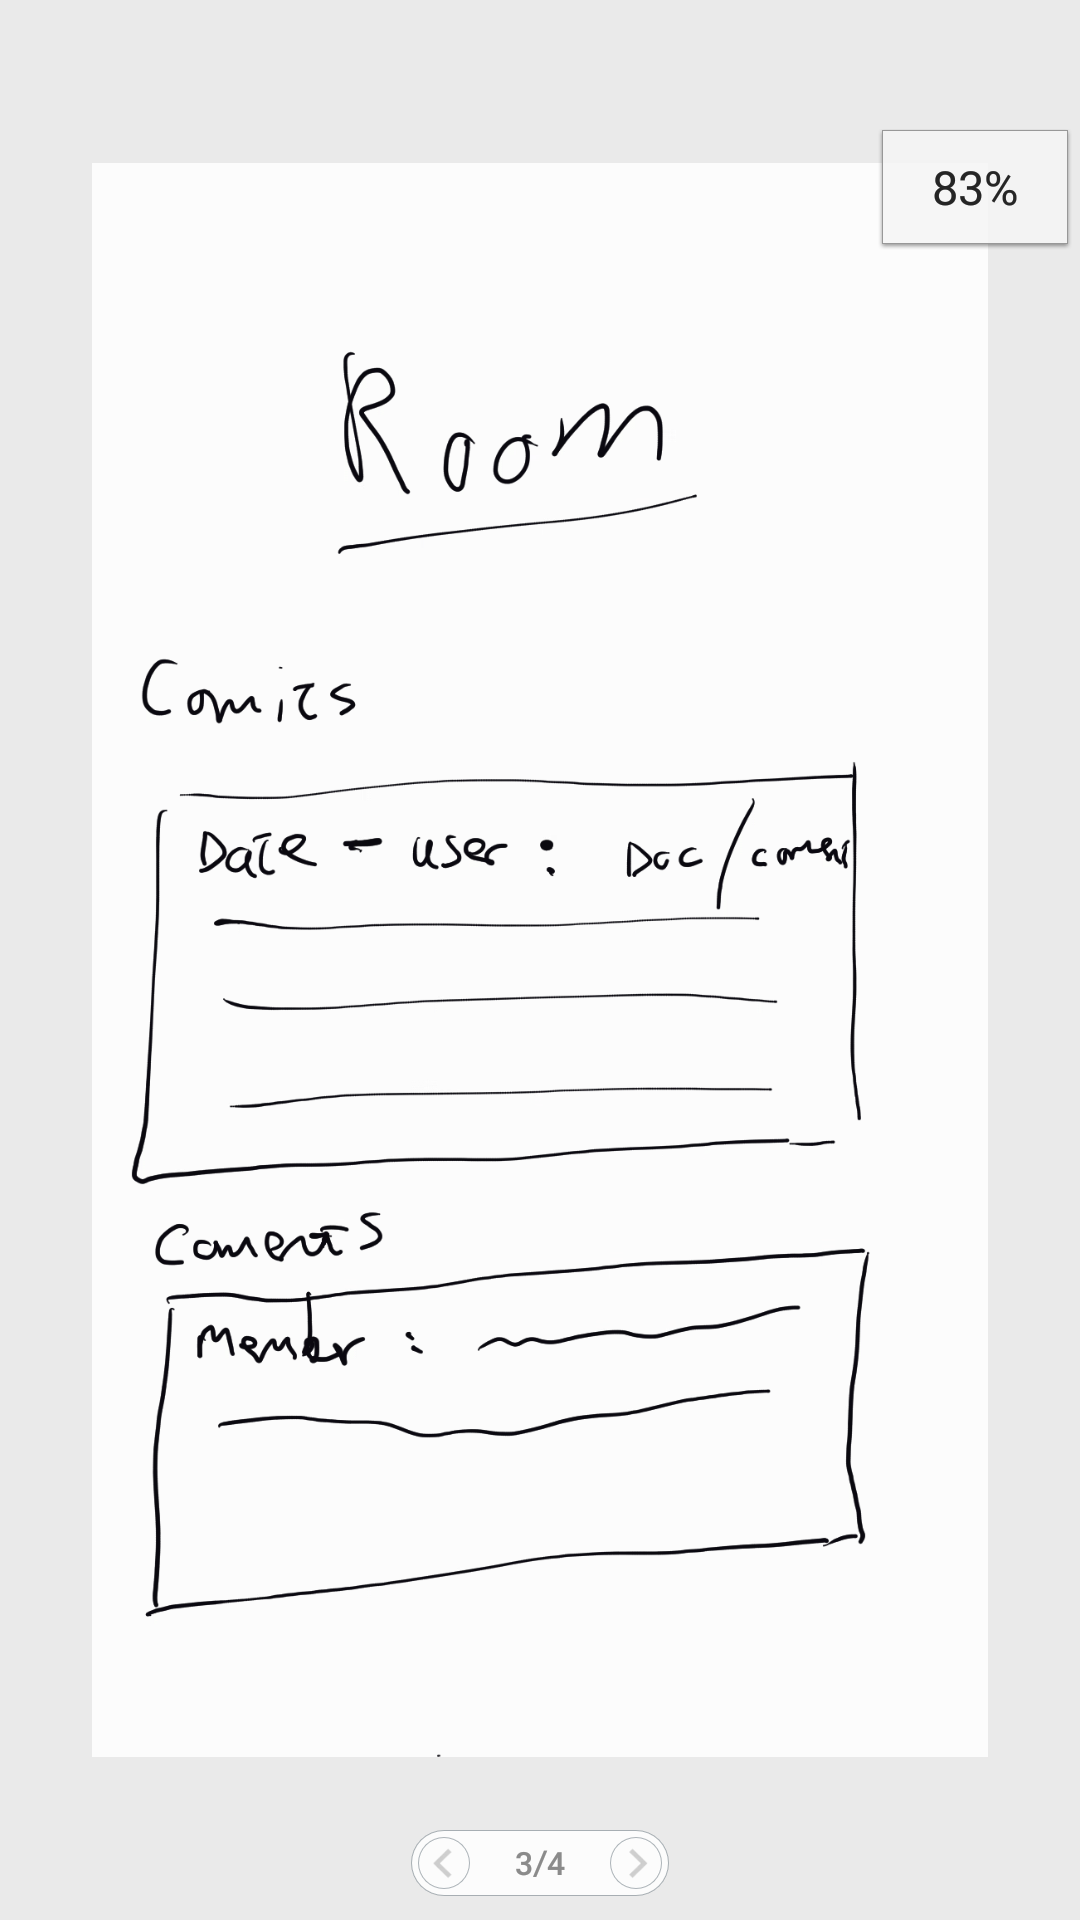 83%
Room
Comits
Date - user : Doc / coment
Coments
Member :
3/4